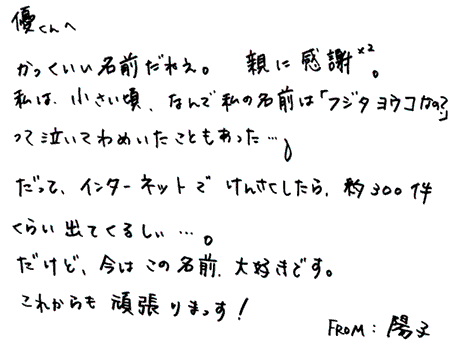 優くんへ
かっくいい名前だねえ。 親に感謝×2。
私は、小さい頃、なんで私の名前は「フジタヨウコなの？」
って泣いてわめいたこともあった…。
だって、インターネットでけんさくしたら、約300件
くらい出てくるしぃ…。
だけど、今はこの名前、大好きです。
これからも頑張りまっす！
FROM：陽子